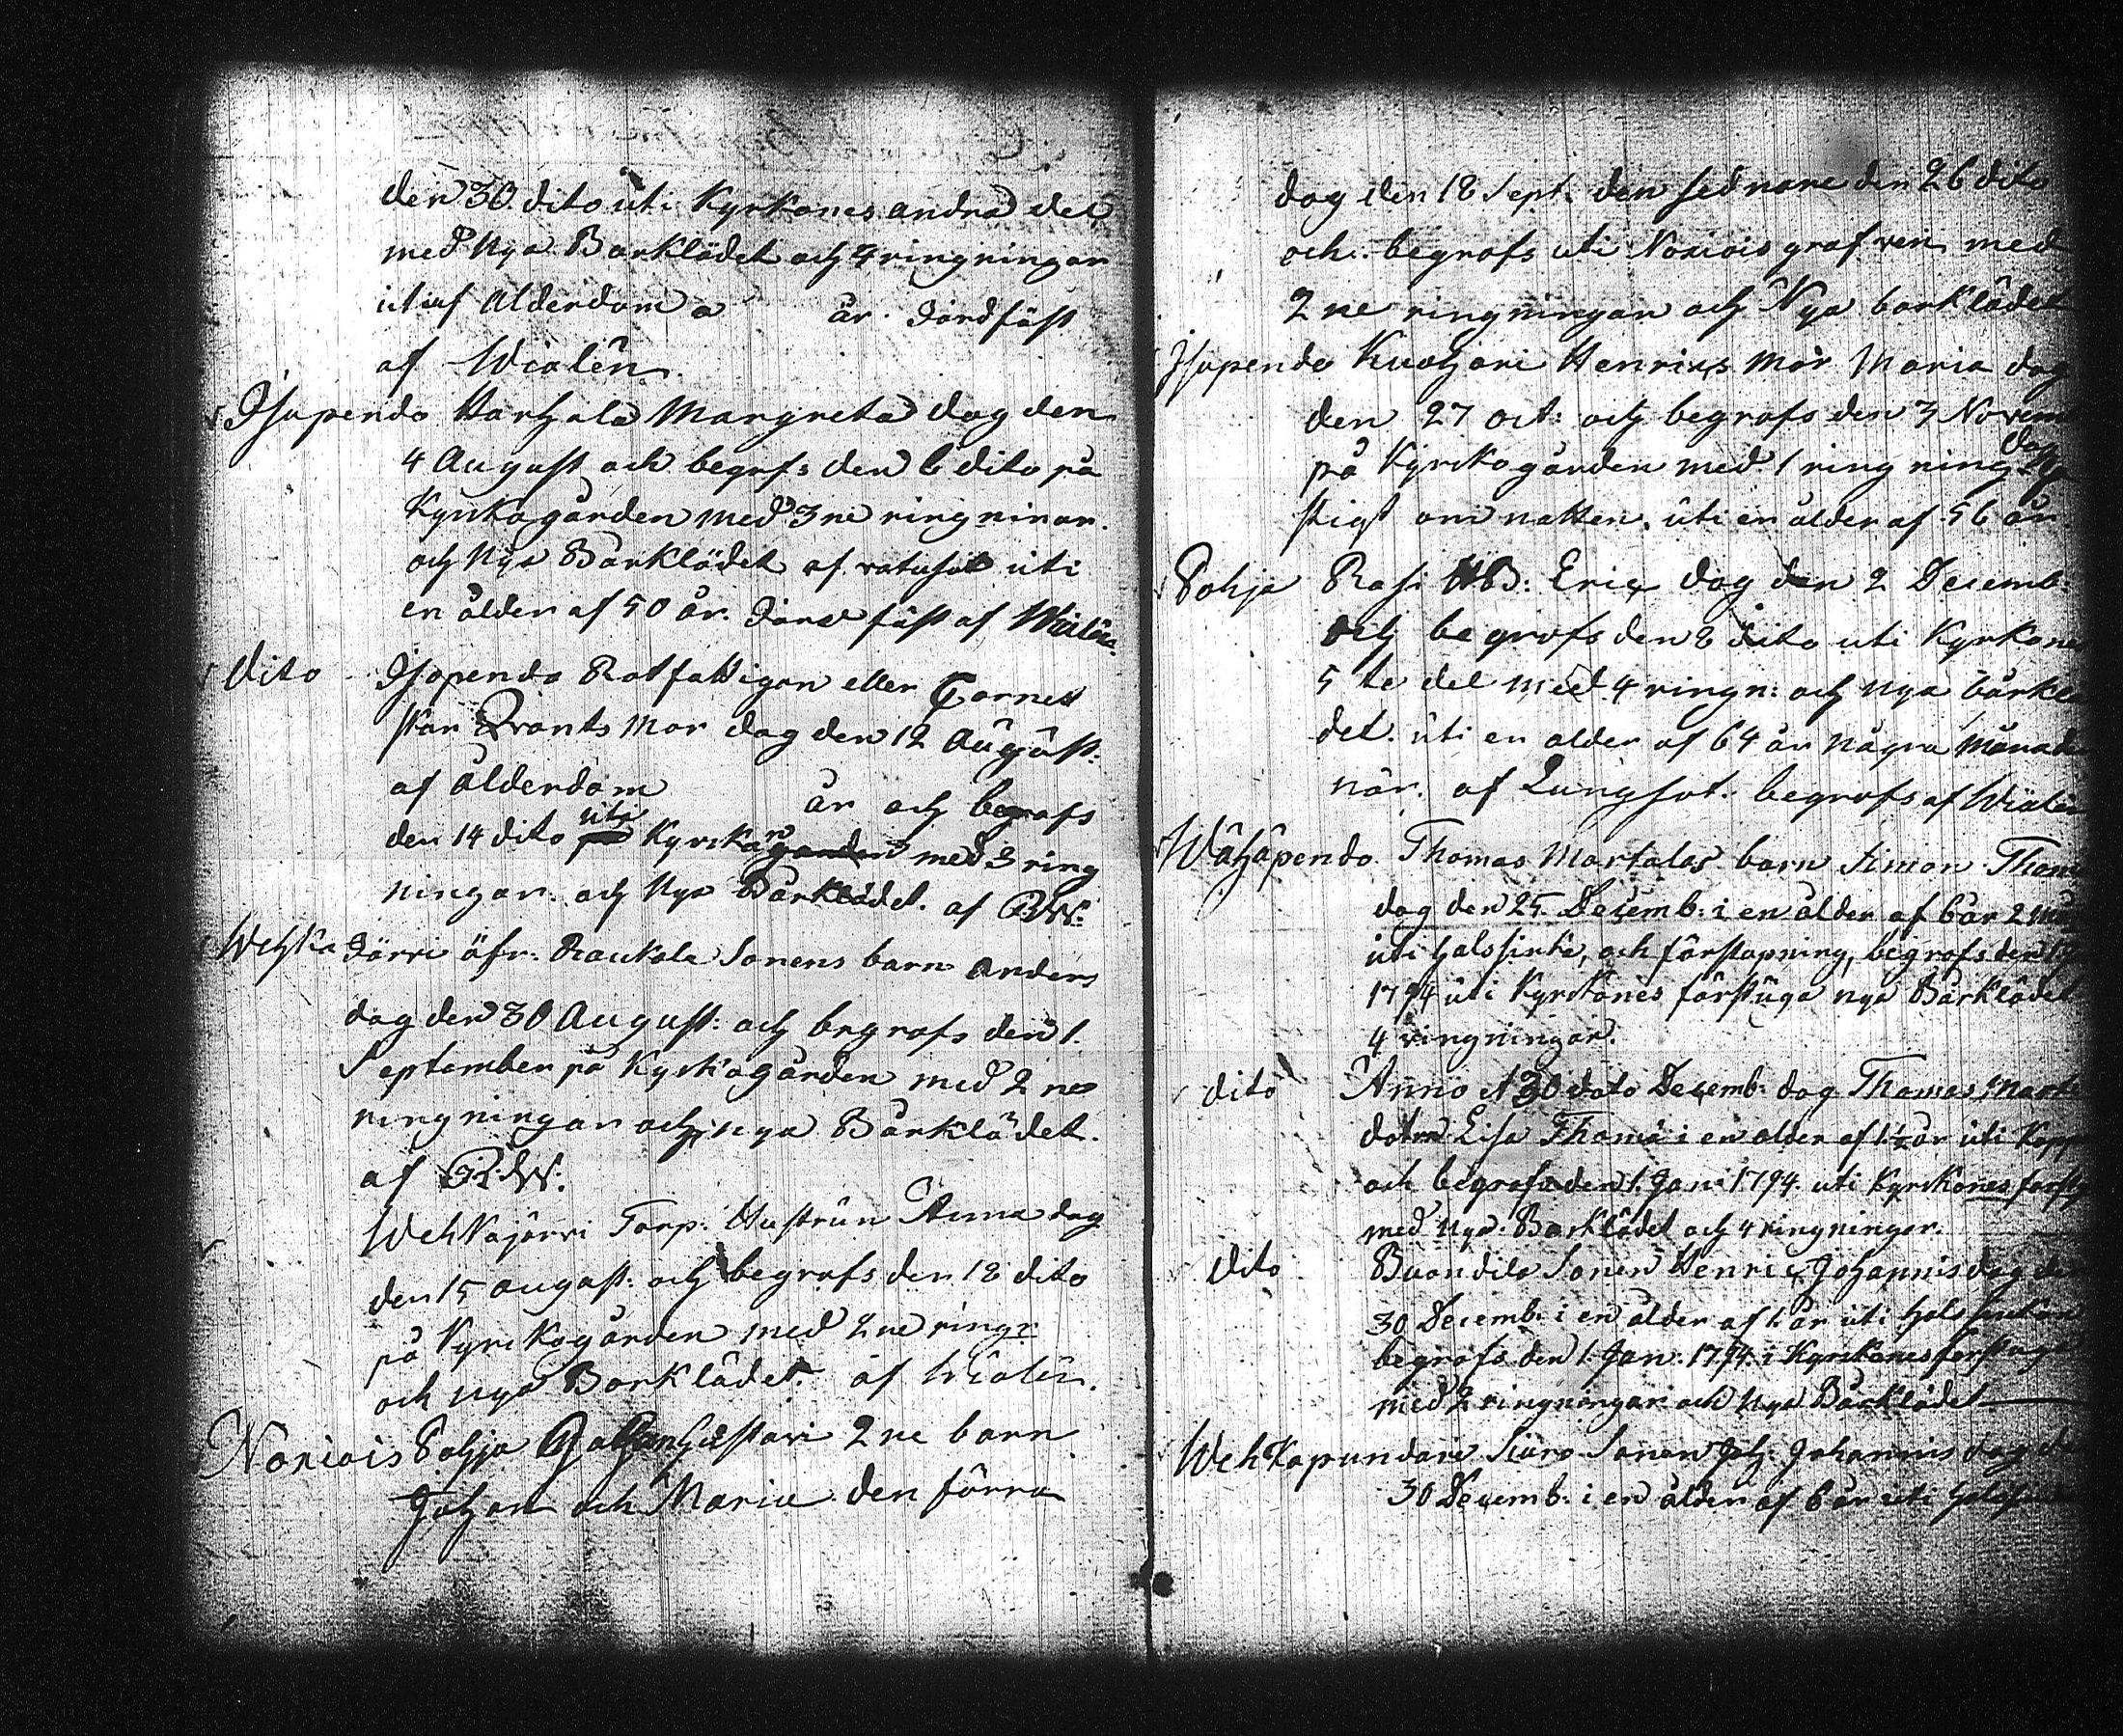 den 30 dito uti Kyrkones andra del
med Nya Barklädet och 4 ringningar
utaf Alderdom a år. Jordfäst
af Wialén.
Isopendo Harjala Margreta dog den
4 August och begrfs den 6 dito på
Kyrckogården med 3ne ringninar.
och Nya Barklädet af rotusot uti
en ålder af 50 år. Jord fäst af Wialén.
Dito Isopendo Rotfattigan eller
Mor dog den 12 August:
af ålderdom år och begrafs
den 14 dito uti Kyrckan med 3 ring
ningar. och Nya Barklädet. af P:W:
Wehka Järvi öfr: Raukola Sonens barn Anders
dog den 30 August: och begrafs den 1.
September på Kyrkogården med 2 ne
ringningar och nya Bårklädet.
af P:W:
Wehkajärvi Torp: Hustrun Anna dog
den 15 august: och begrafs den 18 dito
på Kyrckogården med 2 ne ringr
och nya Barklädet. af Wialén.
Noriois Pohja 2 ne barn
Johan och Maria den förra
dog den 18 Sept. den sednare den 26 dito
och begrafs uti Noriois grafven med
2 ne ringningar och Nya barklädet
Isopendo Henrics Mor Maria dog
den 27 oct: och begrafs den 3 Novem
på Kyrckogården med 1 ringning
stigt om natten. uti en ålder af 56 år.
Pohja Rasi HB: Eric dog den 2 Decemb.
och begrafs den 8 dito uti Kyrkone
5 te del med 4 ringn: och nya bårklä
det. uti en alder af 64 år några månader
när. af Lungsot. begrafs af Wialén
Wähäpendo Thomas Martalas barn Simon Thom
dog den 25 Decemb: i en ålder af 6 år 2 mån
uti halssiuka, och förstopning, begrafs den
1794 uti Kyrckones förstuga nya Bårklädet
4 ringningar.
dito Anno et 30 dato Decemb: dog Thomas Marta
doter Lisa Thomæ i en alder af 1½ år uti Kopp
och begrafs den 1. Jan: 1794. uti Kyrckones forstu
med nya Barklädet och 4 ringningar.
Dito Sonen Henric Johannis dog den
30 Decemb: i en ålder af 1 år uti hals siukan
begrafs den 1 Jan: 1794 i Kyrckones förstuga
med 2 ringningar och Nya Bårklädet
Wehkapundari Sonen Joh: Johannis dog de
30 Decemb: i en ålder af 6 år uti